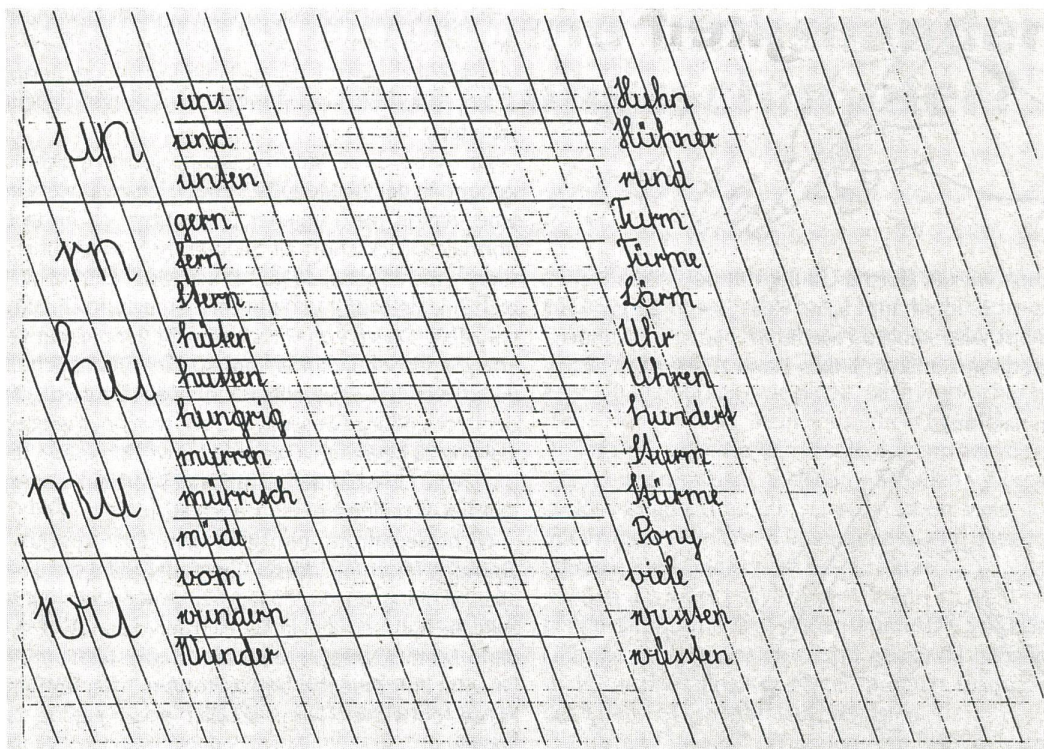 un
uns
und
unten
rn
gern
fern
Stern
hu
hüten
husten
hungrig
mu
murren
mürrisch
müde
wu
vom
wundern
Wunder
Huhn
Hühner
rund
Turm
Türme
Lärm
Uhr
Uhren
hundert
Sturm
Stürme
Pony
viele
wussten
wüssten